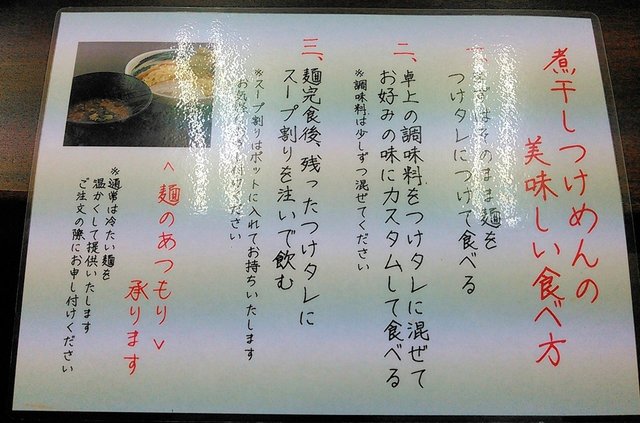 煮干しつけめんの
美味しい食べ方
一、まずはそのまま麺を
つけタレにつけて食べる
二、卓上の調味料をつけタレに混ぜて
お好みの味にカスタムして食べる
※調味料は少しずつ混ぜてください
三、麺完食後、残ったつけタレに
スープ割りを注いで飲む
※スープ割りはポットに入れてお持ちいたします
お気軽にお申し付けください
<麺のあつもり>
承ります
※通常は冷たい麺を
温かくして提供いたします
ご注文の際にお申し付けください